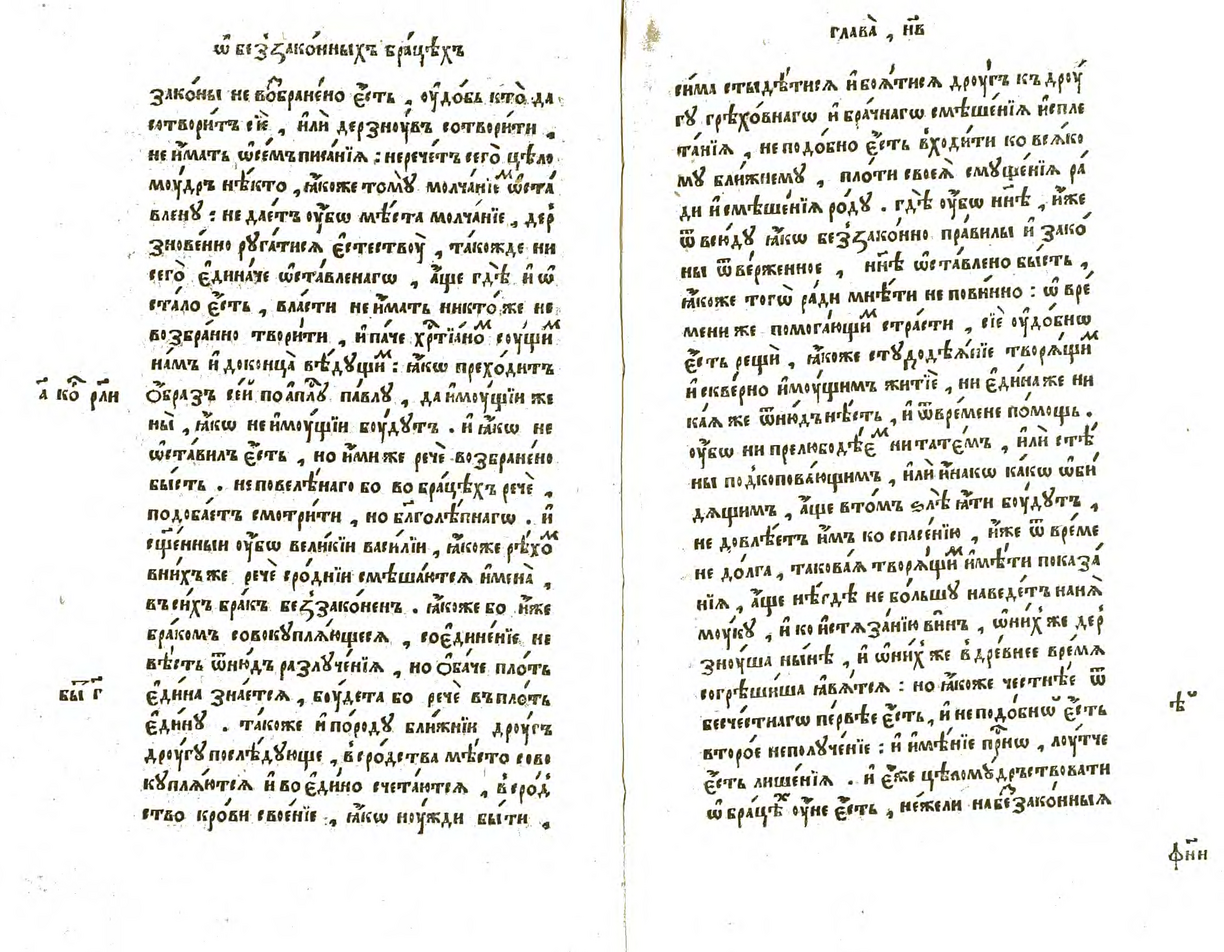 ѿ без̾зако́нныхъ бра́цѣхъ
зако́ны не во́з̾бране́но є҆́сть , ᲂу҆до́бь кто̀ да
сотвори́тъ сїѐ , и҆лѝ дерзноу́въ сотвори́ти ,
не и҆́мать ѡ҆ се́мъ писа́нїѧ : не рече́тъ сего̀ цѣло
моу́дръ нѣ́кто , ꙗ҆́коже томꙋ̀ молча́нїеⷨ ѡ҆ста́
вленꙋ : не дае́тъ ᲂу҆́бѡ мѣ́ста молча́нїе , дер
зно́венно рꙋга́тисѧ є҆стествоу̀ , та́кожде ни
сего̀ є҆дина́че ѡ҆ста́вленагѡ , а҆́ще гдѣ̀ и҆ ѡ҆
ста́ло є҆́сть , вла́сти не и҆́мать никто́же не
возбра́нно твори́ти , и҆ па́че хрⷭ҇тїа́ноⷨ соу́щиⷨ
на́мъ и҆ доконца̀ вѣ́дꙋщиⷨ : ꙗ҆́кѡ прехо́дитъ
ѻ҆́бразъ се́й по а҆пⷭ҇лꙋ па́влꙋ , да и҆моу́щїи же
ны̀ , ꙗ҆́кѡ не и҆моу́щїи боу́дꙋтъ . и҆ ꙗ҆́кѡ не
ѡ҆ста́вилъ є҆́сть , но и҆́миже речѐ возбране́но
бы́сть . не повелѣ́наго бо во бра́цѣхъ речѐ ,
подоба́етъ смотри́ти , но бл҃голѣ́пнагѡ . и҆
сщ҃е́нныи ᲂу҆́бѡ вели́кїи васи́лїи , ꙗ҆́коже рѣ́хоⷨ
вни́хъже речѐ сро́днїи смѣша́ютсѧ и҆мена̀ ,
въ си́хъ бра́къ без̾зако́ненъ . ꙗ҆́коже бо и҆́же
бра́комъ совокꙋплѧ́ющесѧ , соедине́нїе не
вѣ́сть ѿню́дъ разлꙋче́нїѧ , но ѻ҆ба́че пло́ть
є҆ди́на зна́етсѧ , боу́дета бо речѐ въ пло́ть
є҆ди́нꙋ . та́коже и҆ по ро́дꙋ бли́жнїи дроу́гъ
дроу́гꙋ послѣ́дꙋюще , в̾ сро́дства мѣ́сто сово
кꙋплѧ́ютсѧ и҆ во є҆ди́но счета́ютсѧ , в̾ сро́д
ство кро́ви своенїе , ꙗ҆́кѡ ноу́жди бы́ти ,
а҃ ко́р рл҃и
бы҃ г҃
глава̀ , н҃в
си́ма стыдѣ́тисѧ и҆ боѧ́тисѧ дроу́гъ къ дроу́
гꙋ грѣхо́внагѡ и҆ бра́чнагѡ смѣше́нїѧ и҆спле
та́нїѧ , не подо́бно є҆́сть в̾ходи́ти ко всѧ́ко
мꙋ бли́жнемꙋ , пло́ти своеѧ̀ смꙋще́нїѧ ра́
ди и҆ смѣше́нїѧ ро́дꙋ . гдѣ̀ ᲂу҆́бѡ нн҃ѣ , и҆́же
ѿ всю́дꙋ ꙗ҆́кѡ без̾зако́нно пра́вилы и҆ зако́
ны ѿве́рженное , нн҃ѣ ѡ҆ста́влено бы́сть ,
ꙗ҆́коже тогѡ̀ ра́ди мнѣ́ти не пови́нно : ѿ вре́
мени же помога́ющиⷨ стра́сти , сїѐ ᲂу҆до́бнѡ
є҆́сть рещѝ , ꙗ҆́коже стꙋ́додѣѧ́нїе творѧ́щиⷨ
и҆ скве́рно и҆моу́щимъ житїѐ , ни є҆ди́наже ни
ка́ѧ же ѿню́дъ нѣ́сть , и҆ ѿ вре́мене по́мощь .
ᲂу҆́бѡ ни прелюбодѣ́еⷨ ни тате́мъ , и҆лѝ стѣ́
ны подкопова́ющимъ , и҆лѝ и҆на́кѡ ка́кѡ ѡ҆би́
дѧщимъ , а҆́ще вто́мъ ѕлѣ̀ ꙗ҆́ти боу́дꙋтъ ,
не довлѣ́етъ и҆́мъ ко спасе́нїю , и҆́же ѿ вре́ме
не до́лга , такова́ѧ творѧ́щиⷨ и҆мѣ́ти показа́
нїѧ , а҆́ще нѣ́гдѣ не бо́льшꙋ наведе́тъ нанѧ̀
моу́кꙋ , и҆ ко и҆стѧза́нїю ви́нъ , ѡ҆ни́х же дер
зноу́ша ны́нѣ , и҆ ѡ҆ни́х же в̾ дре́внее вре́мѧ
согрѣши́ша ꙗ҆вѧ́тсѧ : но ꙗ҆́коже честнѣ́е ѿ
безче́стнагѡ пе́рвѣе є҆́сть , и҆ неподо́бнѡ є҆́сть
второ́е неполꙋче́нїе : и҆ и҆мѣ́нїе при́снѡ , лоу́тче
є҆́сть лише́нїѧ . и҆ є҆́же цѣломꙋ́дрьствовати
ѡ҆ бра́цѣⷯ ᲂу҆́не є҆́сть , не́жели на без̾зако́нныѧ
ѣ҆
ф҃ни